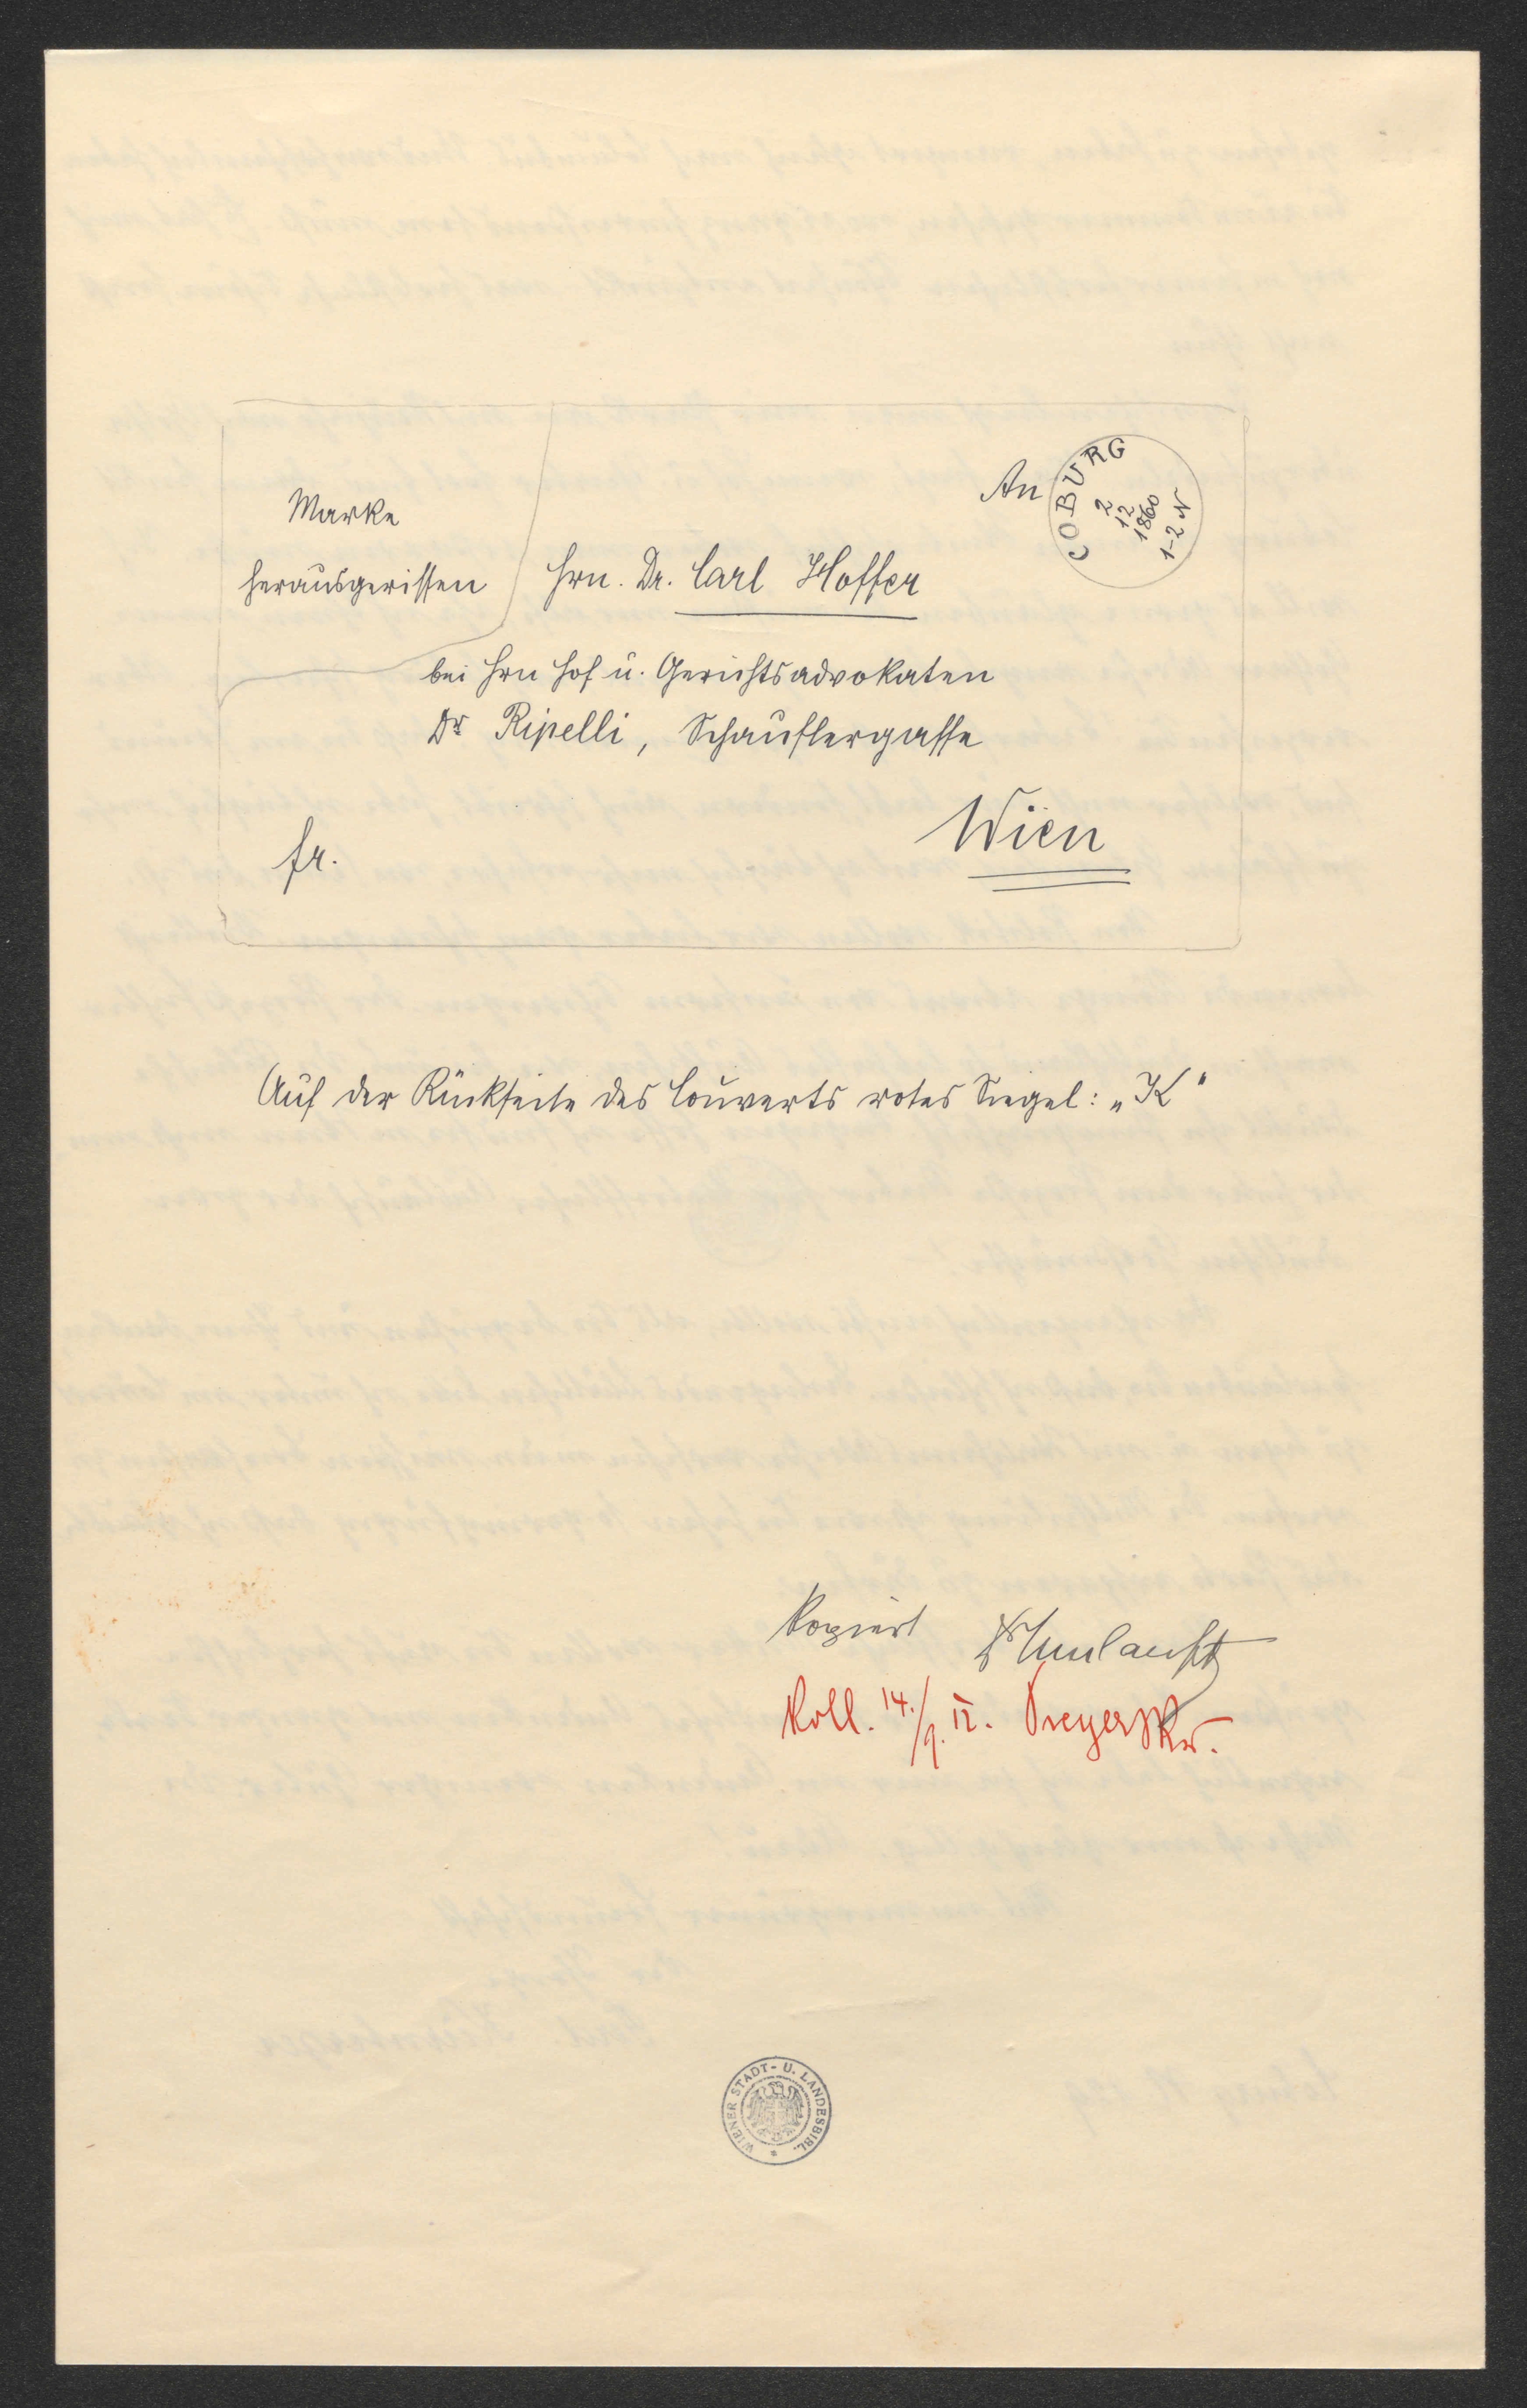 An
COBURG
2
12
1860
1-2 N
Marke
herausgerissen
Hrn. Dr. Carl Hoffer
bei Hrn Hof u. Gerichtsadvokaten
Dr Ripelli, Schauflergasse
Wien
fr.
Auf der Rückseite des Couverts rotes Siegel: „K"
Kopiert Dr Umlauft
Koll. 14./9. 12.
WIENER STADT- U. LANDESBIBL.